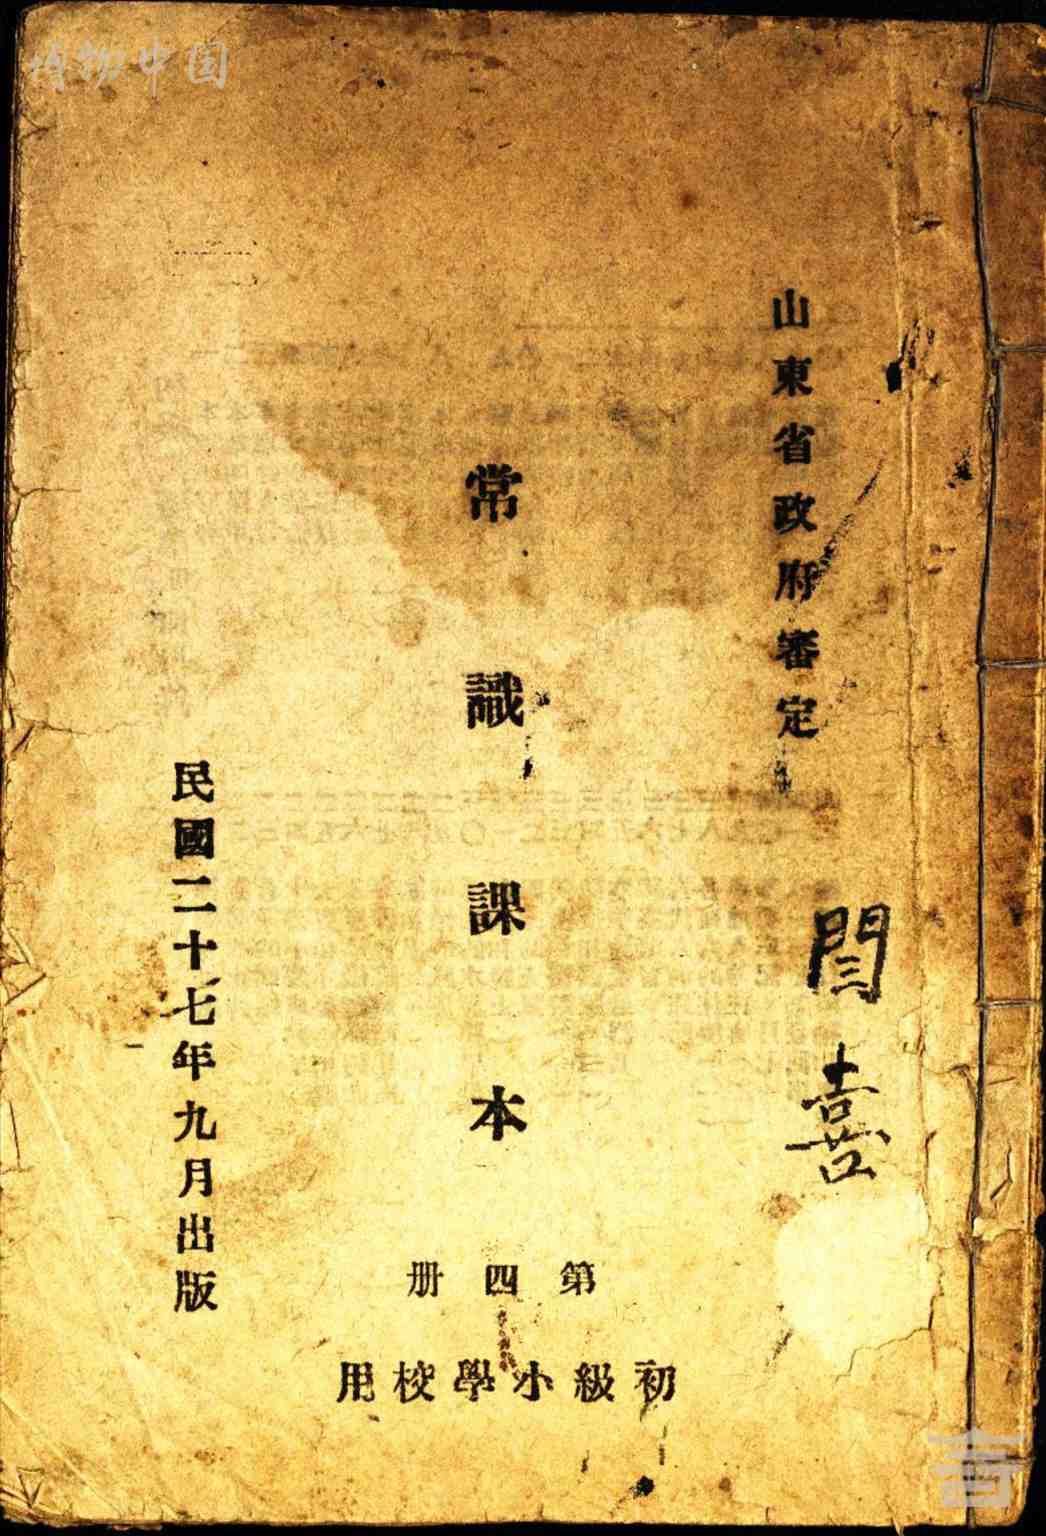 山東省政府審定
閆喜
常識課本
第四册
初級小學校用
民國二十七年九月出版
博物中国